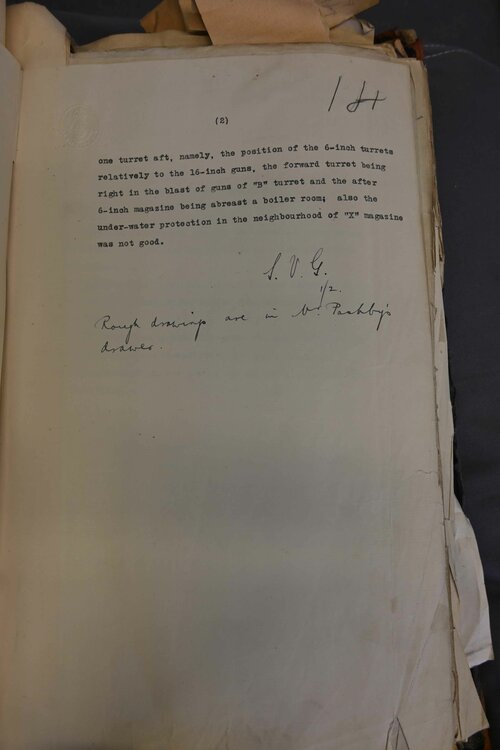 14
(2)
one turret aft, namely, the position of the 6-inch turrets
relatively to the 16-inch guns, the forward turret being
right in the blast of guns of "B" turret and the after
6-inch magazine being abreast a boiler room; also the
under-water protection in the neighbourhood of "X" magazine
was not good.
S. V. G.
1/2.
Rough drawings are in Mr. Pashby's
drawer.